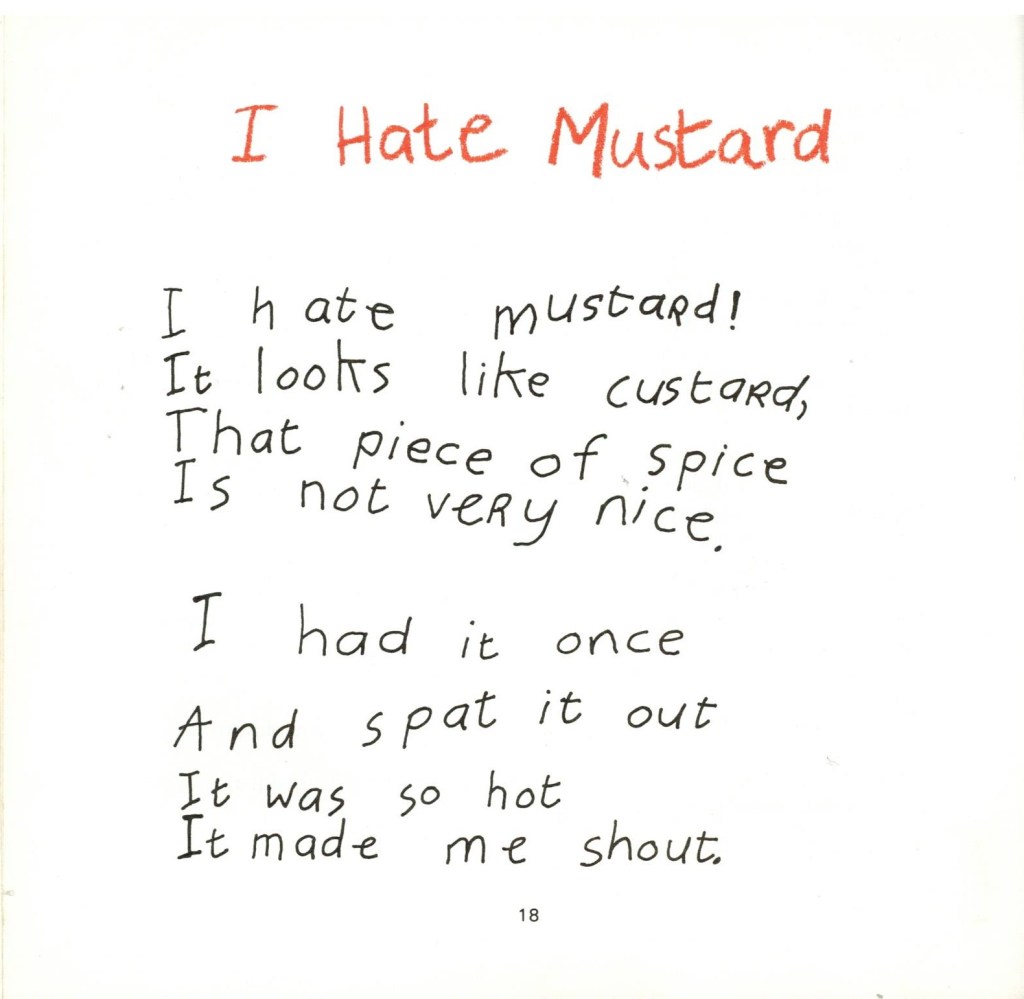 I Hate Mustard
I hate mustard!
It looks like custard,
That piece of spice
Is not very nice.
I had it once
And spat it out
It was so hot
It made me shout.
18